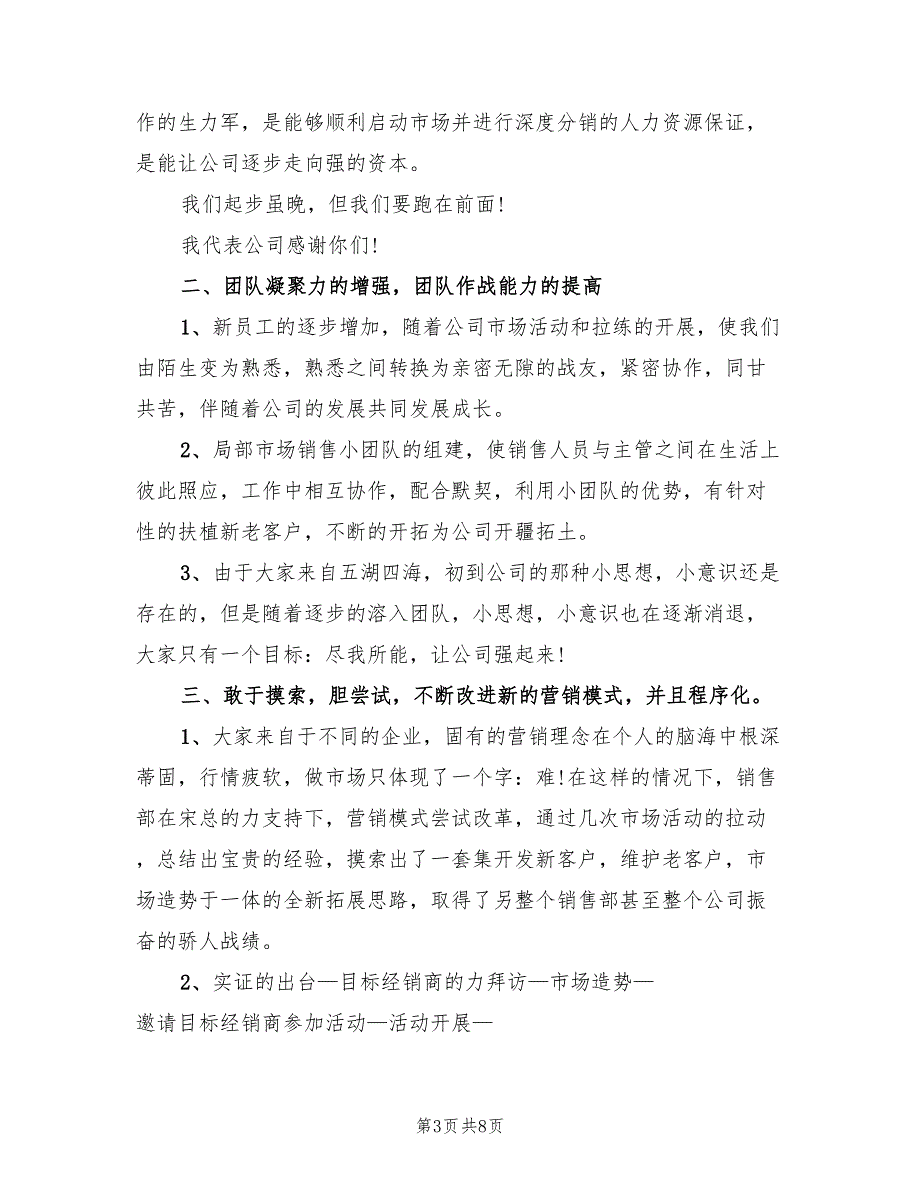 作的生力军，是能够顺利启动市场并进行深度分销的人力资源保证，
是能让公司逐步走向强的资本。
我们起步虽晚，但我们要跑在前面!
我代表公司感谢你们!
二、团队凝聚力的增强，团队作战能力的提高
1、新员工的逐步增加，随着公司市场活动和拉练的开展，使我们
由陌生变为熟悉，熟悉之间转换为亲密无隙的战友，紧密协作，同甘
共苦，伴随着公司的发展共同发展成长。
2、局部市场销售小团队的组建，使销售人员与主管之间在生活上
彼此照应，工作中相互协作，配合默契，利用小团队的优势，有针对
性的扶植新老客户，不断的开拓为公司开疆拓土。
3、由于大家来自五湖四海，初到公司的那种小思想，小意识还是
存在的，但是随着逐步的溶入团队，小思想，小意识也在逐渐消退，
大家只有一个目标：尽我所能，让公司强起来!
三、敢于摸索，胆尝试，不断改进新的营销模式，并且程序化。
1、大家来自于不同的企业，固有的营销理念在个人的脑海中根深
蒂固，行情疲软，做市场只体现了一个字：难!在这样的情况下，销售
部在宋总的力支持下，营销模式尝试改革，通过几次市场活动的拉动
，总结出宝贵的经验，摸索出了一套集开发新客户，维护老客户，市
场造势于一体的全新拓展思路，取得了另整个销售部甚至整个公司振
奋的骄人战绩。
2、实证的出台—目标经销商的力拜访—市场造势—
邀请目标经销商参加活动—活动开展—
第3页 共8页